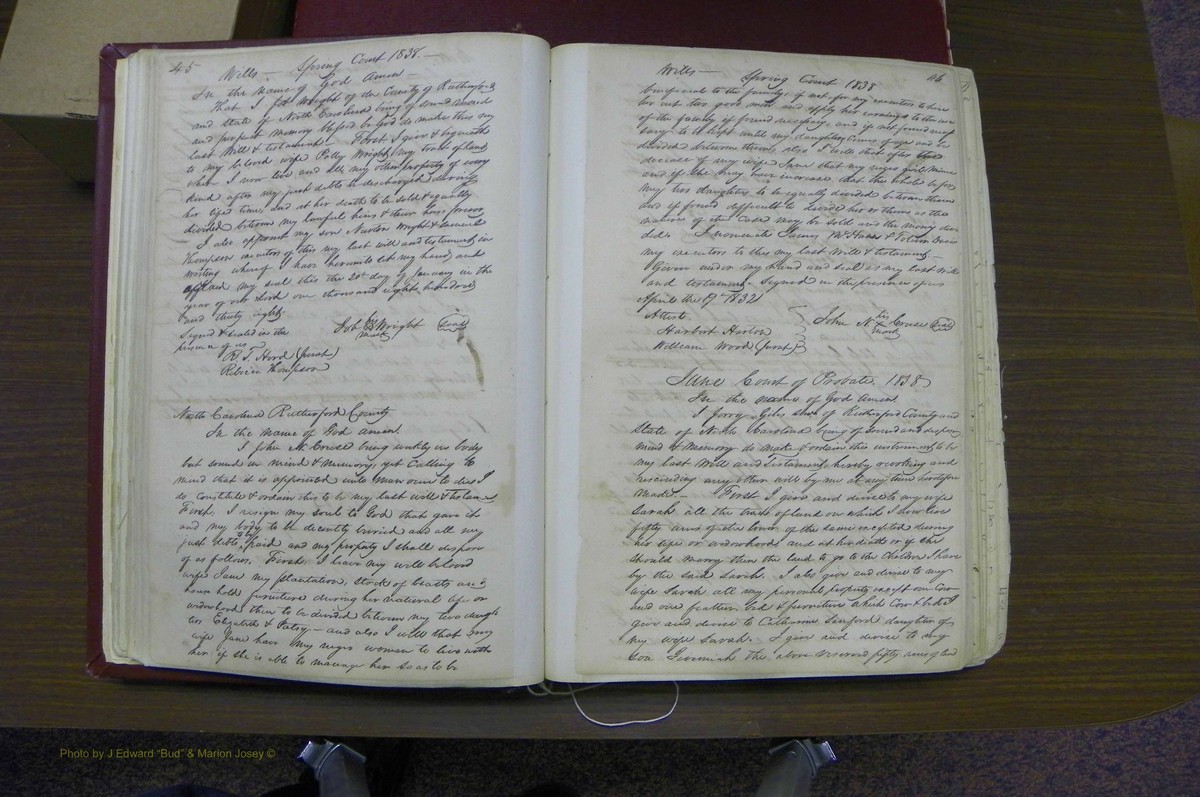 45
Wills — Spring Court 1838. —
In the name of God Amen —
That I Job Wright of the County of Rutherford
and State of North Carolina being of sound mind
and perfect memory blessed be God do make this my
last Will & testament. First I give & bequeath
to my beloved wife Polly Wright my tract of land
where I now live and all my other property of every
kind after my just debts is discharged during
her life time, and at her death to be sold & equally
divided between my lawful heirs & their heirs forever
I also appoint my son Newton Wright &
Thompson executors of this my last will and testament in
witness whereof I have hereunto set my hand and
affixed my seal this the 20th day of January in the
year of our Lord one thousand eight hundred
and thirty eight.
Signed & sealed in the
presence of us
Job his mark Wright (Seal)
R. T. Hord (Jurat)
Thompson
North Carolina Rutherford County
In the name of God Amen
I John N. Cruse being weakly in body
but sound in mind & memory, yet calling to
mind that it is appointed unto Man once to die I
do Constitute & ordain this to be my last will & testament
First. I resign my soul to God that gave it
and my body to be decently buried and all my
just debts to be paid and my property I shall dispose
of as follows. First. I leave my well beloved
wife Jane my plantation, stock of beasts and
house hold furniture during her natural life or
widowhood then to be divided between my two daugh
ters Elizabeth & Patsy — and also I will that my
wife Jane have my negro woman to live with
her if she is able to manage her so as to be
Wills — Spring Court 1838 46
beneficial to the family, if not for my executors to hire
her out to a good man and apply her earnings to the use
of the family if found necessary and if not found neces
sary to be kept until my daughters comes of age and be
divided between them, also I will that after the
decease of my wife Jane that my negro girl
and if she may ever increase that the whole before
my two daughters to be equally divided between them
and if found difficult to divide her or them as the
nature of the Case may be sold and the money divi
ded. I nominate James &
my executors to this my last Will & testament —
Given under my hand and seal as my last will
and testament. Signed in the presence of us
April the 17 1832
Attest
John N. his mark Cruse (Seal)
Harbert Harton
William Wood (Jurat)
June Court of Probate 1838
In the name of God Amen
I of Rutherford County and
State of North Carolina being of sound and disposing
mind & Memory do make & ordain this instrument to be
my last Will and Testament, hereby revoking and
rescinding any other will by me at any time heretofore
made — First I give and devise to my wife
Sarah all the tract of land on which I now live
fifty acres of the lower of the same excepted during
her life or widowhood and at her death or if she
should marry then the land to go to the Children I have
by the said Sarah. I also give and devise to my
wife Sarah all my personal property except one Cow
and one feather bed & furniture which Cow & bed I
give and devise to Catharine Sanford daughter of
my wife Sarah. I give and devise to my
son Jeremiah the above reserved fifty acres of land
Photo by J Edward "Bud" & Marion Josey ©